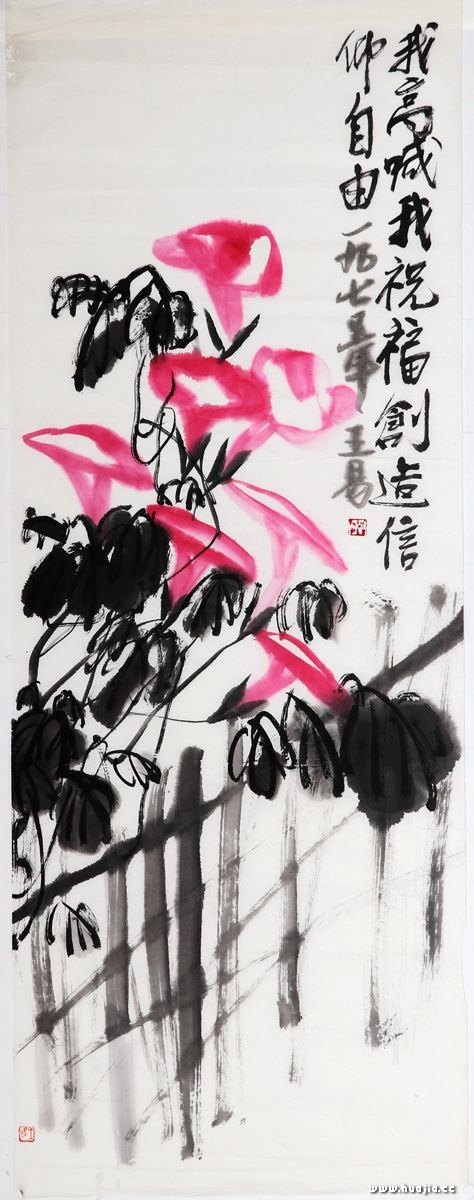 我高喊我祝福創造信
仰自由一九七五年王易
www.huajia.cc